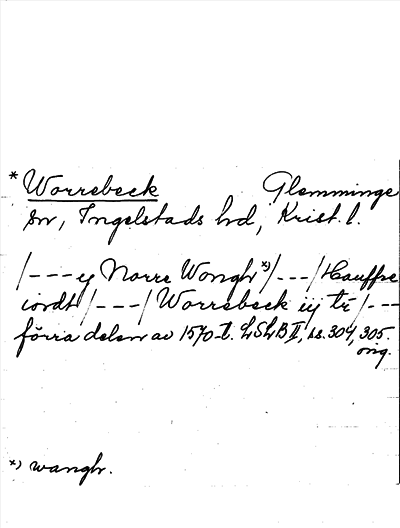 * Worrebeck Glemminge
sn, Ingelstads hd, Krist. l.
/---ej Norre Wongh *)/---/Hauffre
iordt/---/Worrebeck iij tr/---
förra delen av 1570-t. LSLB II, ss. 304, 305.
orig.
*) wangh.